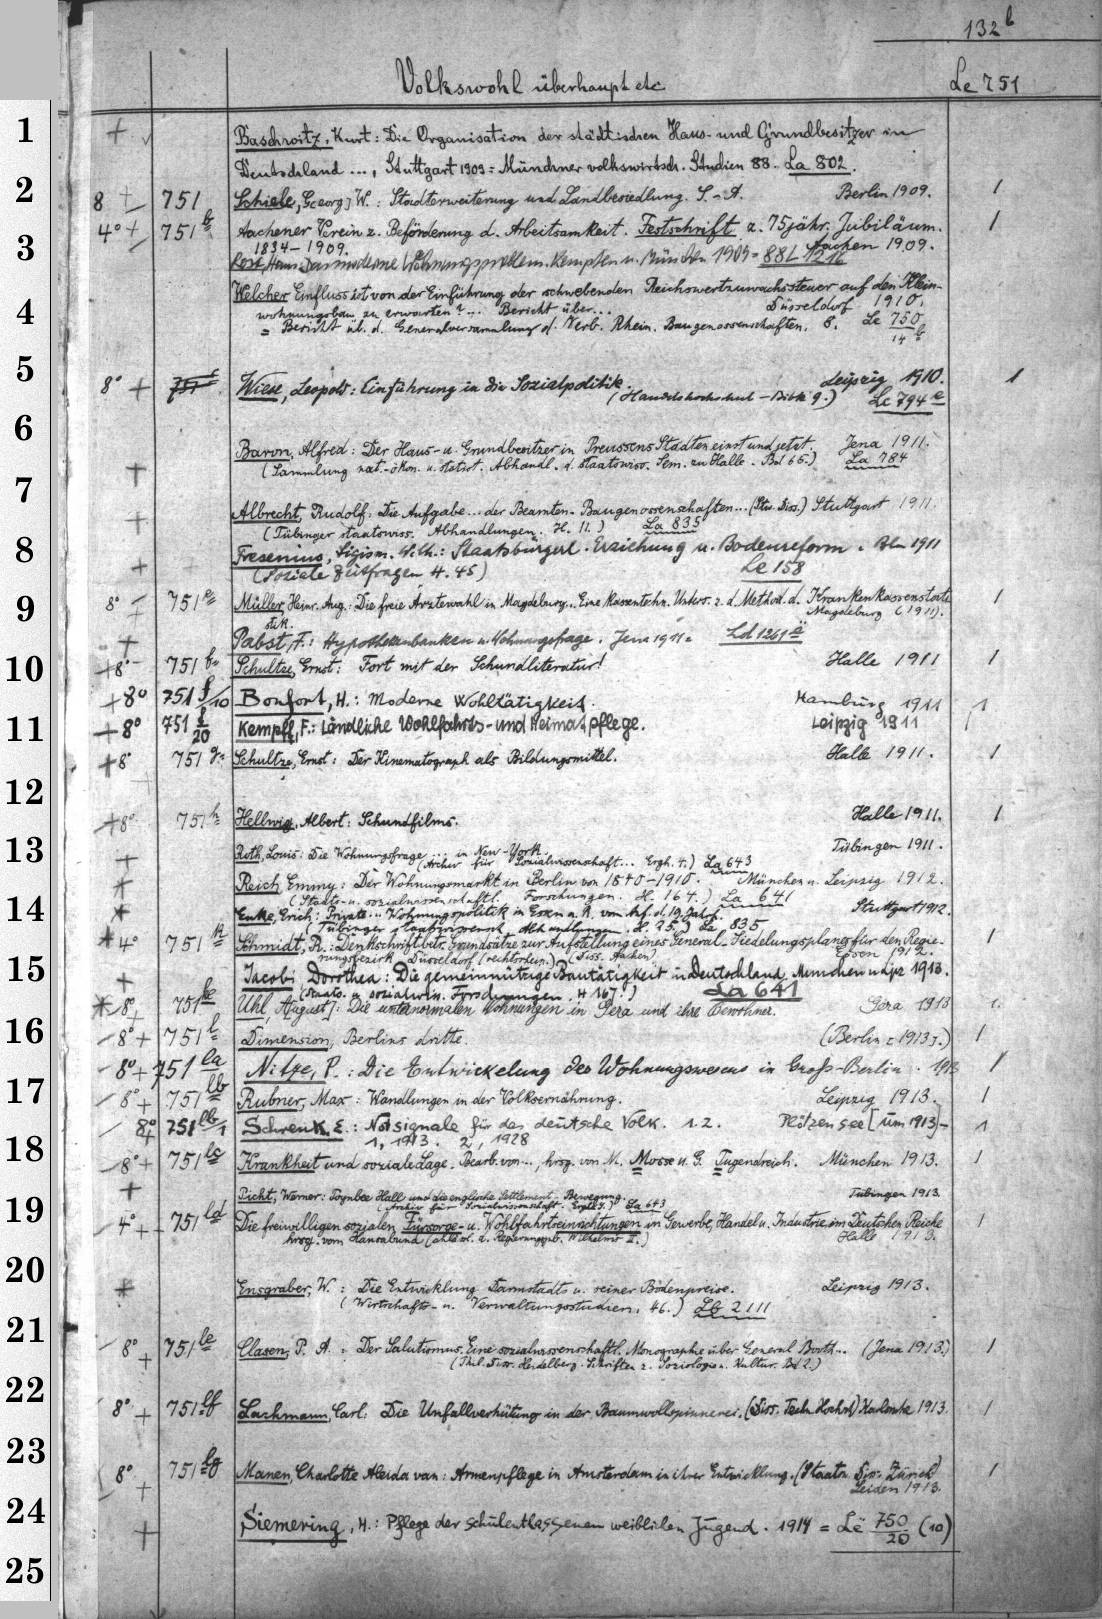 132 b
Volkswohl überhaupt etc Le 751
1
+ Baschwitz, Kurt: Die Organisation der städtischen Haus- und Grundbesitzer in
Deutschland ..., Stuttgart 1909 = Münchner volkswirtsch. Studien 88. La 802.
2
8 + 751 Schiele, G[eorg] W.: Stadterweiterung und Landbesiedlung. S.-A. Berlin 1909. 1
4° + 751 b Aachener Verein z. Beförderung d. Arbeitsamkeit. Festschrift z. 75 jähr. Jubiläum. 1
3
1834-1909. Aachen 1909.
Rost, Hans: Das moderne Wohnungsproblem. Kempten u. München 1909 = 88L 1216
Welcher Einfluss ist von der Einführung der schwebenden Reichswertzuwachssteuer auf den Klein-
4
wohnungsbau zu erwarten? ... Bericht über ... Düsseldorf 1910.
= Bericht üb. d. Generalversammlung d. Verb. Rhein. Baugenossenschaften. 8. Le 750/14 b
5
8° + 751 c Wiese, Leopold: Einführung in die Sozialpolitik. Leipzig 1910. 1
(Handelshochschul-Bibl. 9.) Le 794 e
6
Baron, Alfred: Der Haus- u. Grundbesitzer in Preussens Städten einst und jetzt. Jena 1911.
+ (Sammlung nat.-ökon. u. statist. Abhandl. d. staatswiss. Sem. zu Halle. Bd 65.) La 784
7
+ Albrecht, Rudolf: Die Aufgabe ... der Beamten-Baugenossenschaften ... (Stw. Diss.) Stuttgart 1911.
(Tübinger staatswiss. Abhandlungen. H. 11.) La 835
8
+ Fresenius, Sigism. Wilh.: Staatsbürgerl. Erziehung u. Bodenreform. Bln 1911
(Soziale Zeitfragen H. 45) Le 158
9
8° - 751 e Müller, Heinr. Aug.: Die freie Arztewahl in Magdeburg.. Eine kassentechn. Unters. z. d. Method. d. Krankenkassenstatistik. 1
Magdeburg (1911).
+ Pabst, F.: Hypothekenbanken u. Wohnungsfrage. Jena 1911 = Ld 1261 a
10
+8° - 751 f. Schultze, Ernst: Fort mit der Schundliteratur! Halle 1911 1
+8° 751 f/10 Bonfort, H.: Moderne Wohltätigkeit. Hamburg 1911 1
11
+8° 751 f/20 Kempff, F.: Ländliche Wohlfahrts- und Heimatpflege. Leipzig 1911 1
+8° 751 g. Schultze, Ernst: Der Kinematograph als Bildungsmittel. Halle 1911. 1
12
+8° 751 h Hellwig, Albert: Schundfilms. Halle 1911. 1
13
+ Roth, Louis: Die Wohnungsfrage ... in New-York. Tübingen 1911.
(Archiv für Sozialwissenschaft... Ergh. 4.) La 643
+ Reich, Emmy: Der Wohnungsmarkt in Berlin von 1840-1910. München u. Leipzig 1912.
(Staats- u. sozialwissenschaftl. Forschungen. H. 164.) La 641
14
+ Enke, Erich: Private ... Wohnungspolitik in Essen a. R. von Anf. d. 19. Jahrh. Stuttgart 1912.
(Tübinger staatswissensch. Abhandlungen. H. 25.) La 835
4° 751 k Schmidt, R.: Denkschrift betr. Grundsätze zur Aufstellung eines General-Siedelungsplanes für den Regie- 1
rungsbezirk Düsseldorf (rechtsrhein.). (Diss. Aachen) Essen 1912.
15
+ Jacobi, Dorothea: Die gemeinnützige Bautätigkeit in Deutschland. München u. Lpz 1913.
(Staats- u. sozialwiss. Forschungen. H 167.) La 641
8° + 751 ke Uhl, A[ugust]: Die unternormalen Wohnungen in Gera und ihre Bewohner. Gera 1913 1.
16
8° + 751 l Dimension, Berlins dritte. (Berlin [1913].) 1
8° + 751 la Nitze, P.: Die Entwickelung des Wohnungswesens in Groß-Berlin. 1913 1
17
8° + 751 lb Rubner, Max: Wandlungen in der Volksernährung. Leipzig 1913. 1
8° + 751 lb/1 Schrenk, E.: Notsignale für das deutsche Volk. 1.2. Plötzensee [um 1913]- 1
1, 1913. 2, 1928
18
8° + 751 lc Krankheit und soziale Lage. Bearb. von..., hrsg. von M. Mosse u. G. Tugendreich. München 1913. 1
+ Picht, Werner: Toynbee Hall und die englische Settlement-Bewegung. Tübingen 1913.
(Archiv für Sozialwissenschaft. Ergh. 9.) La 643
19
4° + 751 ld Die freiwilligen sozialen Fürsorge- u. Wohlfahrtseinrichtungen in Gewerbe, Handel u. Industrie im Deutschen Reiche 1
hrsg. vom Hansabund Halle 1913.
20
+ Ensgraber, W.: Die Entwicklung Darmstadts u. seiner Bodenpreise. Leipzig 1913.
(Wirtschafts- u. Verwaltungsstudien. 46.) Lb 2111
21
8° + 751 le Clasen, P. A.: Der Salutismus. Eine sozialwissenschaftl. Monographie über General Booth... (Jena 1913.) 1
(Phil. Diss. Heidelberg. Schriften z. Soziologie u. Kultur. Bd 2.)
22
8° + 751 lf Lachmann, Carl: Die Unfallverhütung in der Baumwollspinnerei. (Diss. Techn. Hochsch) Karlsruhe 1913. 1
23
8° + 751 lg Manen, Charlotte Aleida van: Armenpflege in Amsterdam in ihrer Entwicklung. (Staatw. Diss. Zürich) 1
Leiden 1913.
24
+ Siemering, H.: Pflege der schulentlassenen weiblichen Jugend. 1914 = Le 750/20 (10)
25